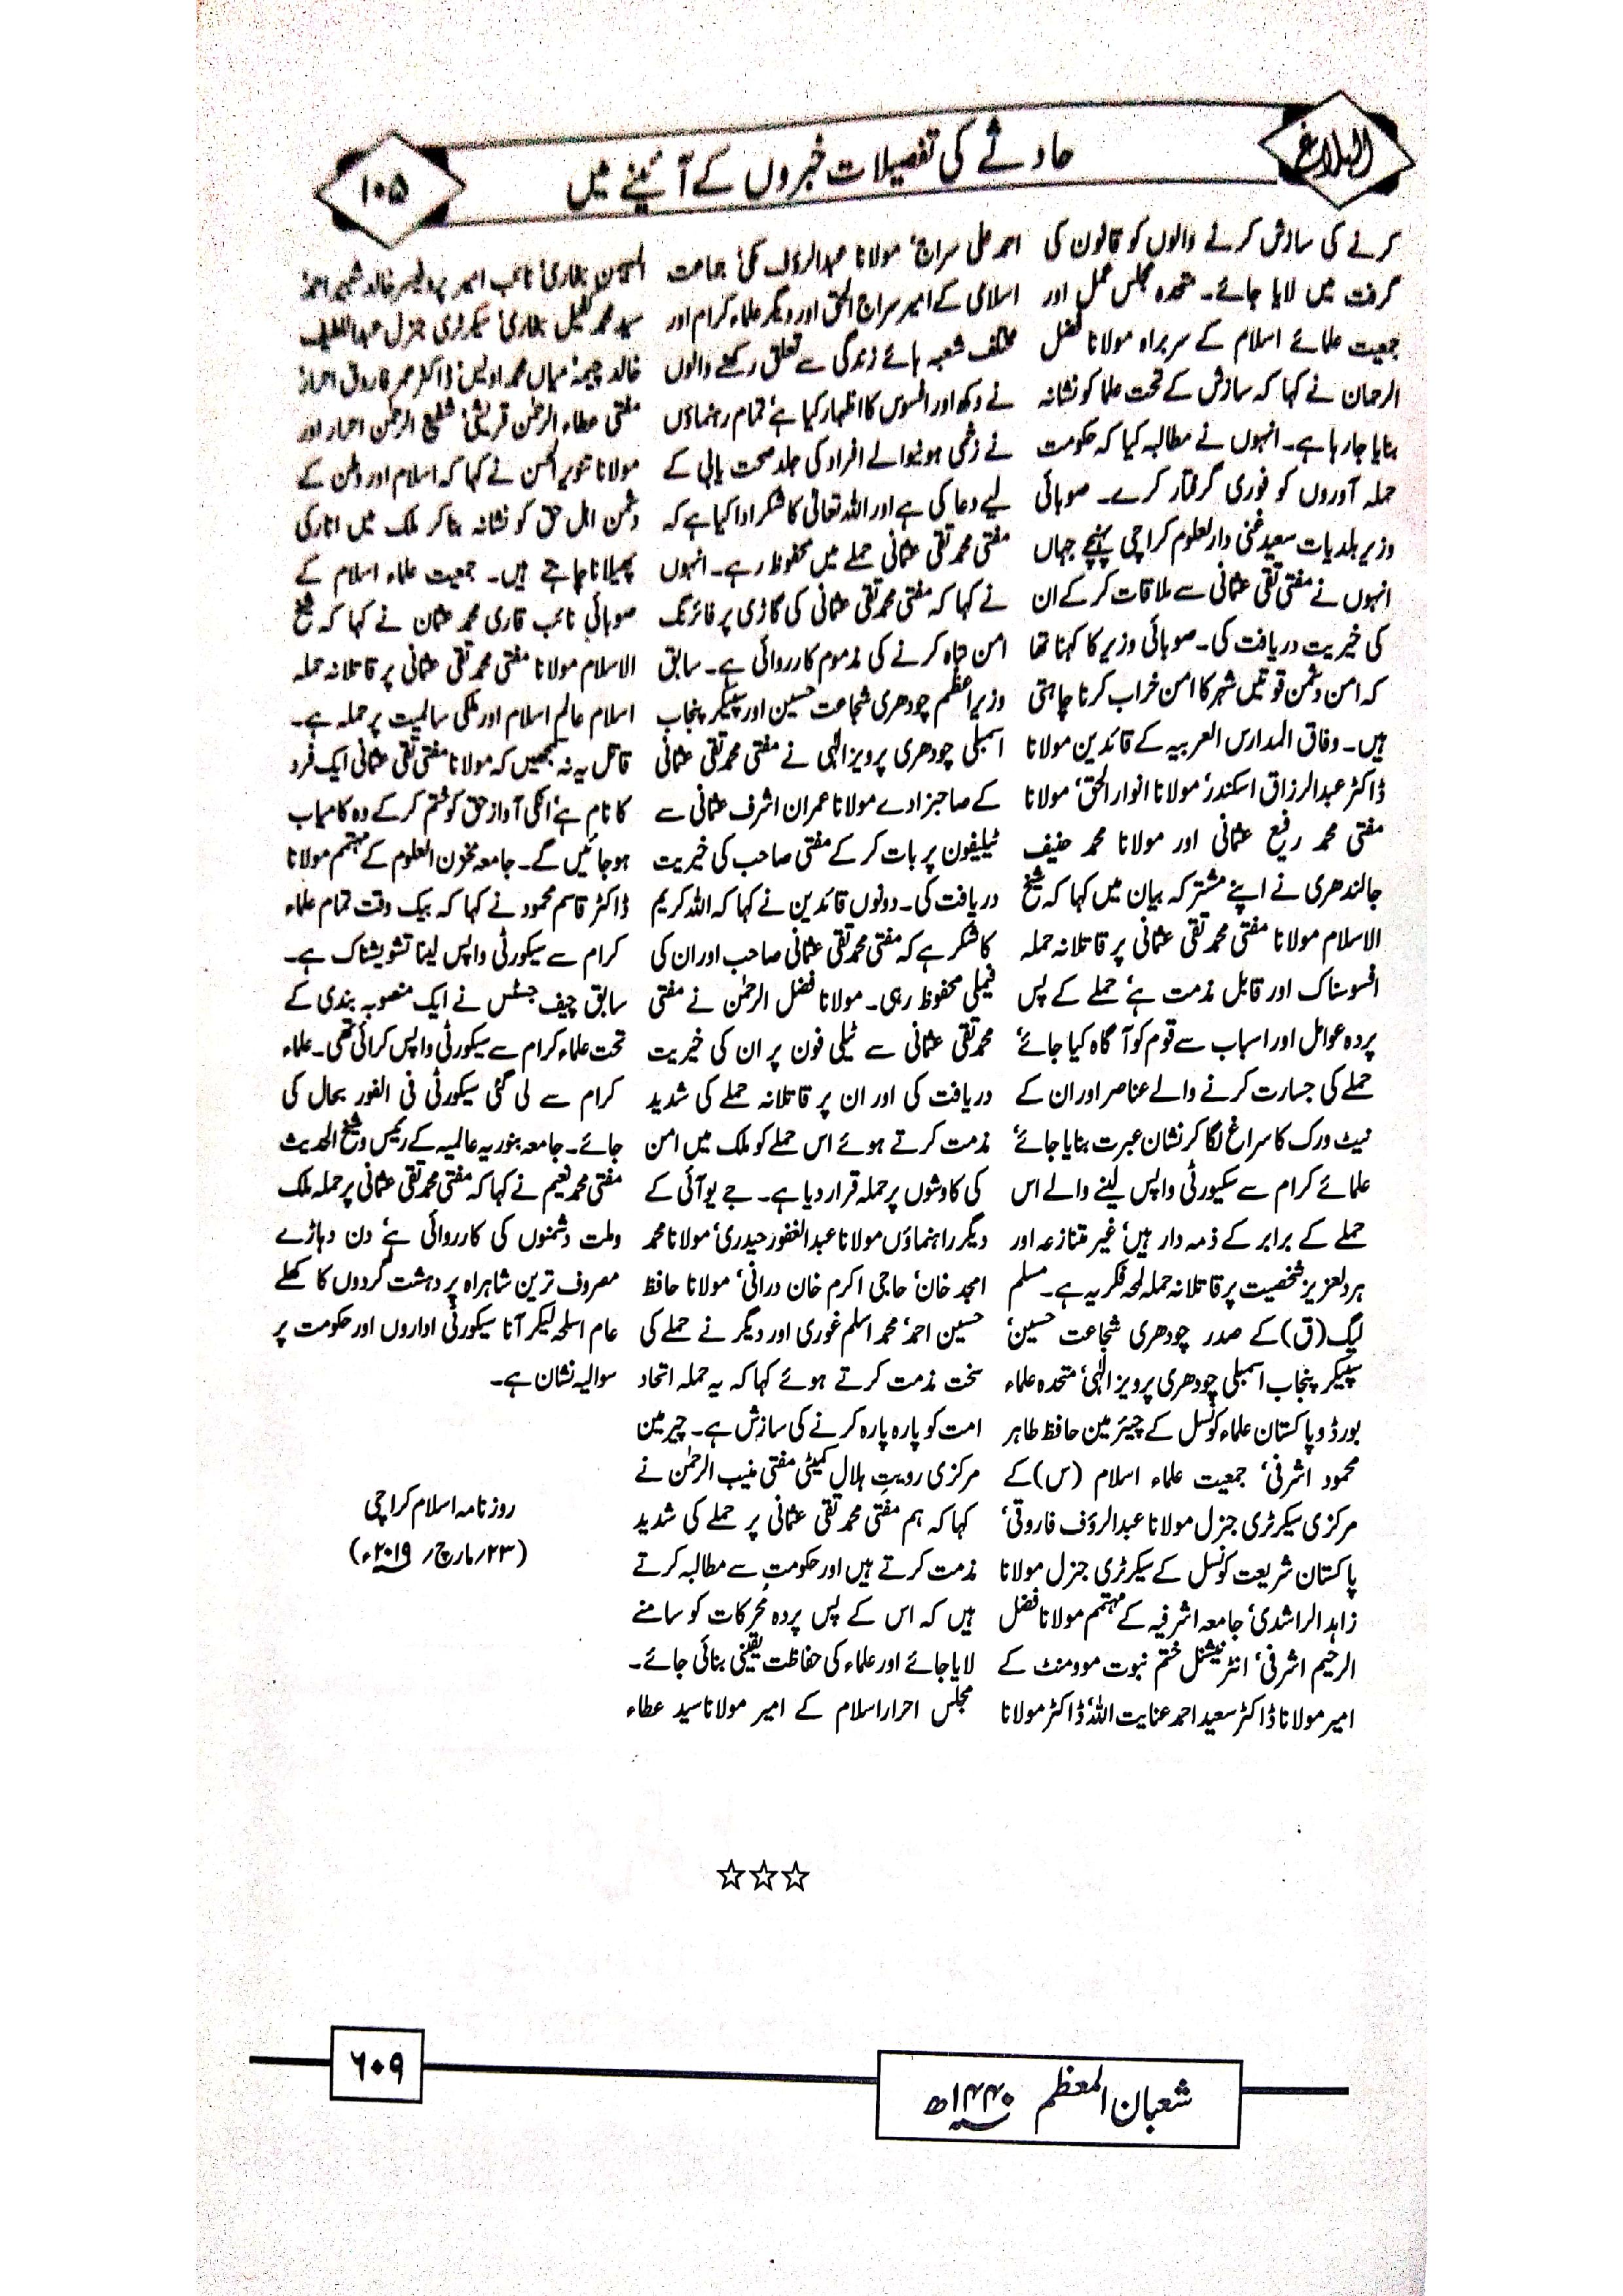 البلاغ
حادثے کی تفصیلات خبروں کے آئینے میں
۱۰۵
کرنے کی سازش کرنے والوں کو قانون کی
گرفت میں لایا جائے۔ متحدہ مجلس عمل اور
جمعیت علمائے اسلام کے سربراہ مولانا فضل
الرحمان نے کہا کہ سازش کے تحت علما کو نشانہ
بنایا جارہا ہے۔ انہوں نے مطالبہ کیا کہ حکومت
حملہ آوروں کو فوری گرفتار کرے۔ صوبائی
وزیر بلدیات سعید غنی دارلعلوم کراچی پہنچے جہاں
انہوں نے مفتی تقی عثمانی سے ملاقات کرکے ان
کی خیریت دریافت کی۔ صوبائی وزیر کا کہنا تھا
کہ امن دشمن قوتیں شہر کا امن خراب کرنا چاہتی
ہیں۔ وفاق المدارس العربیہ کے قائدین مولانا
ڈاکٹر عبدالرزاق اسکندر، مولانا انوار الحق، مولانا
مفتی محمد رفیع عثمانی اور مولانا محمد حنیف
جالندھری نے اپنے مشترکہ بیان میں کہا کہ شیخ
الاسلام مولانا مفتی محمد تقی عثمانی پر قاتلانہ حملہ
افسوسناک اور قابل مذمت ہے، حملے کے پس
پردہ عوامل اور اسباب سے قوم کو آگاہ کیا جائے،
حملے کی جسارت کرنے والے عناصر اور ان کے
نیٹ ورک کا سراغ لگا کر نشان عبرت بنایا جائے،
علمائے کرام سے سکیورٹی واپس لینے والے اس
حملے کے برابر کے ذمہ دار ہیں، غیر متنازعہ اور
ہردلعزیز شخصیت پر قاتلانہ حملہ لمحہ فکریہ ہے۔ مسلم
لیگ (ق) کے صدر چودھری شجاعت حسین،
سپیکر پنجاب اسمبلی چودھری پرویز الٰہی، متحدہ علماء
بورڈ و پاکستان علماء کونسل کے چیئرمین حافظ طاہر
محمود اشرفی، جمعیت علماء اسلام (س) کے
مرکزی سیکرٹری جنرل مولانا عبدالرؤف فاروقی،
پاکستان شریعت کونسل کے سیکرٹری جنرل مولانا
زاہد الراشدی، جامعہ اشرفیہ کے مہتمم مولانا فضل
الرحیم اشرفی، انٹرنیشنل ختم نبوت موومنٹ کے
امیر مولانا ڈاکٹر سعید احمد عنایت اللہ، ڈاکٹر مولانا
احمد علی سراج، مولانا عبدالرؤف مکی، جماعت
اسلامی کے امیر سراج الحق اور دیگر علماء کرام اور
مختلف شعبہ ہائے زندگی سے تعلق رکھنے والوں
نے دکھ اور افسوس کا اظہار کیا ہے، تمام رہنماؤں
نے زخمی ہونیوالے افراد کی جلد صحت یابی کے
لیے دعا کی ہے اور اللہ تعالیٰ کا شکر ادا کیا ہے کہ
مفتی محمد تقی عثمانی حملے میں محفوظ رہے۔ انہوں
نے کہا کہ مفتی محمد تقی عثمانی کی گاڑی پر فائرنگ
امن تباہ کرنے کی مذموم کارروائی ہے۔ سابق
وزیراعظم چودھری شجاعت حسین اور سپیکر پنجاب
اسمبلی چودھری پرویز الٰہی نے مفتی محمد تقی عثمانی
کے صاحبزادے مولانا عمران اشرف عثمانی سے
ٹیلیفون پر بات کر کے مفتی صاحب کی خیریت
دریافت کی۔ دونوں قائدین نے کہا کہ اللہ کریم
کا شکر ہے کہ مفتی محمد تقی عثمانی صاحب اور ان کی
فیملی محفوظ رہی۔ مولانا فضل الرحمٰن نے مفتی
محمد تقی عثمانی سے ٹیلی فون پر ان کی خیریت
دریافت کی اور ان پر قاتلانہ حملے کی شدید
مذمت کرتے ہوئے اس حملے کو ملک میں امن
کی کاوشوں پر حملہ قرار دیا ہے۔ جے یو آئی کے
دیگر راہنماؤں مولانا عبدالغفور حیدری، مولانا محمد
امجد خان، حاجی اکرم خان درانی، مولانا حافظ
حسین احمد، محمد اسلم غوری اور دیگر نے حملے کی
سخت مذمت کرتے ہوئے کہا کہ یہ حملہ اتحاد
امت کو پارہ پارہ کرنے کی سازش ہے۔ چیرمین
مرکزی رویت ہلال کمیٹی مفتی منیب الرحمٰن نے
کہا کہ ہم مفتی محمد تقی عثمانی پر حملے کی شدید
مذمت کرتے ہیں اور حکومت سے مطالبہ کرتے
ہیں کہ اس کے پس پردہ محرکات کو سامنے
لایا جائے اور علماء کی حفاظت یقینی بنائی جائے۔
مجلس احرار اسلام کے امیر مولانا سید عطاء
المہیمن بخاری، نائب امیر پروفیسر خالد شبیر احمد،
سید محمد کفیل بخاری، سیکرٹری جنرل عبداللطیف
خالد چیمہ، میاں محمد اویس، ڈاکٹر عمر فاروق احرار،
مفتی عطاء الرحمٰن قریشی، شفیع الرحمٰن احرار اور
مولانا تنویر الحسن نے کہا کہ اسلام اور وطن کے
دشمن اہل حق کو نشانہ بنا کر ملک میں انارکی
پھیلانا چاہتے ہیں۔ جمعیت علماء اسلام کے
صوبائی نائب قاری محمد عثمان نے کہا کہ شیخ
الاسلام مولانا مفتی محمد تقی عثمانی پر قاتلانہ حملہ
اسلام عالم اسلام اور ملکی سالمیت پر حملہ ہے۔
قاتل یہ نہ سمجھیں کہ مولانا مفتی تقی عثمانی ایک فرد
کا نام ہے، انکی آواز حق کو ختم کر کے وہ کامیاب
ہوجائیں گے۔ جامعہ مخزن العلوم کے مہتمم مولانا
ڈاکٹر قاسم محمود نے کہا کہ بیک وقت تمام علماء
کرام سے سیکورٹی واپس لینا تشویشناک ہے۔
سابق چیف جسٹس نے ایک منصوبہ بندی کے
تحت علماء کرام سے سیکورٹی واپس کرائی تھی۔ علماء
کرام سے لی گئی سیکورٹی فی الفور بحال کی
جائے۔ جامعہ بنوریہ عالمیہ کے رئیس و شیخ الحدیث
مفتی محمد نعیم نے کہا کہ مفتی محمد تقی عثمانی پر حملہ ملک
وملت دشمنوں کی کارروائی ہے، دن دہاڑے
مصروف ترین شاہراہ پر دہشت گردوں کا کھلے
عام اسلحہ لیکر آنا سیکورٹی اداروں اور حکومت پر
سوالیہ نشان ہے۔
روزنامہ اسلام کراچی
(۲۳؍مارچ؍ ۲۰۱۹ء)
☆☆☆
شعبان المعظم ۱۴۴۰ھ
۶۰۹